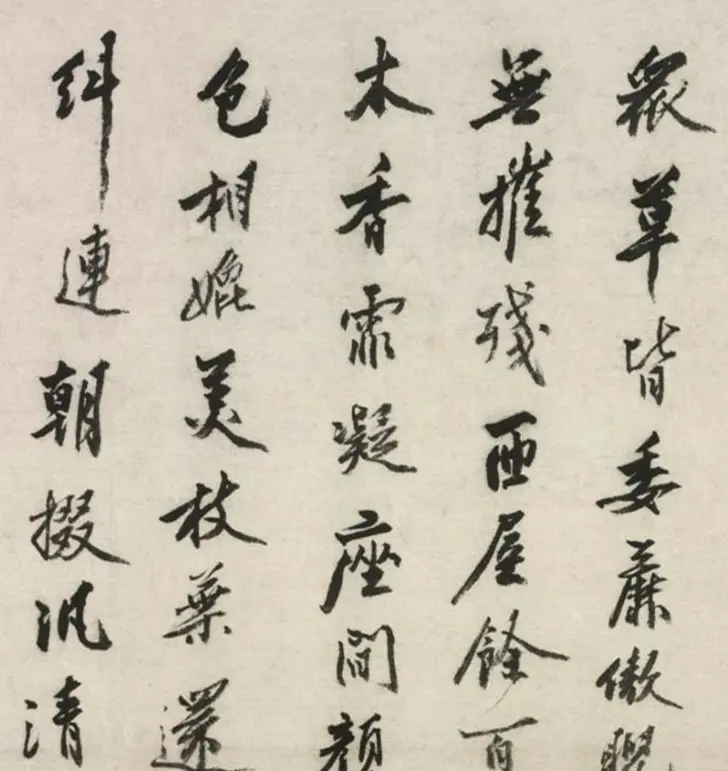 衆草皆委靡傲睨
無摧殘匝屋餘百
木香霏凝座間顏
色相媲美枝葉還
糾連朝掇汎清